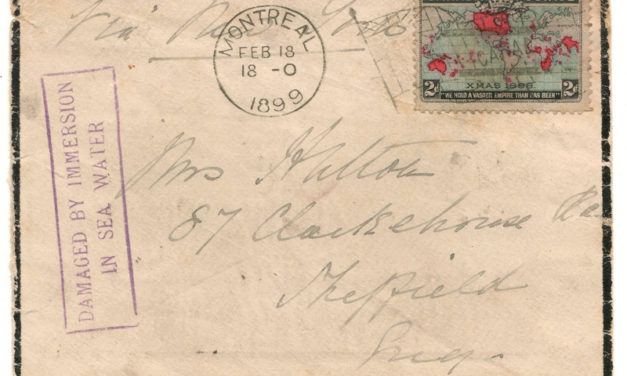 Via New York
MONTREAL
FEB 18
18 - 0
1899
CANADA
XMAS 1898
2c 2c
"WE HOLD A VASTER EMPIRE THAN HAS BEEN"
DAMAGED BY IMMERSION
IN SEA WATER
Mrs Hutton
87 Clarkehouse
Sheffield
Eng.